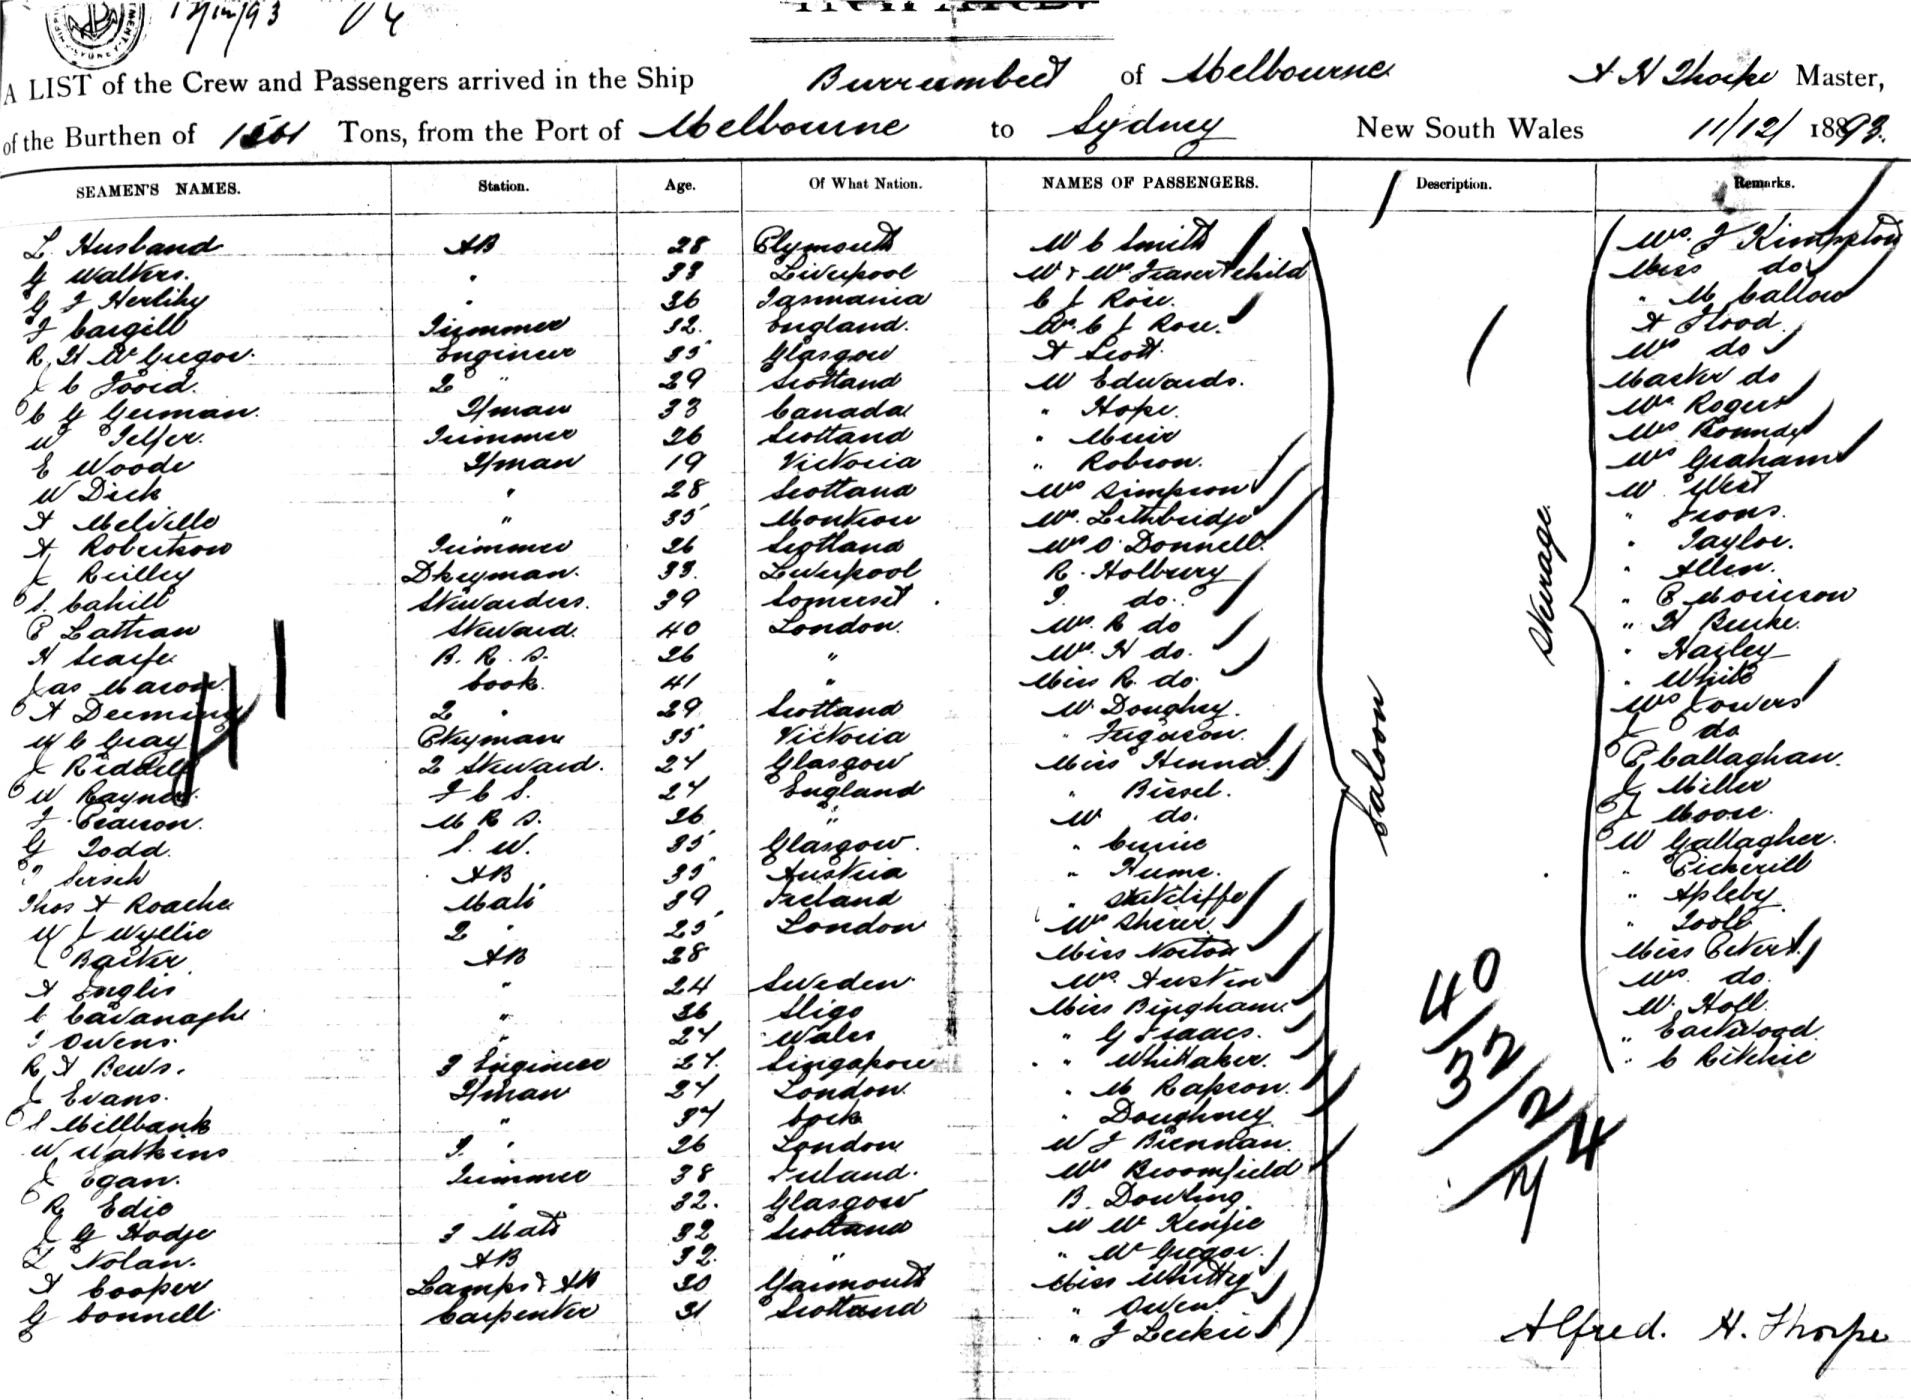 12/12/93
A LIST of the Crew and Passengers arrived in the Ship Burrumbeet of Melbourne A H Thorpe Master,
of the Burthen of Tons, from the Port of Melbourne to Sydney New South Wales 11/12/ 1893.
SEAMEN'S NAMES. Station. Age. Of What Nation. NAMES OF PASSENGERS. Description. Remarks.
L Husband AB 28 Plymouth W C Smith Mrs. J Kimpton
G Walters. " 33 Liverpool M & Mrs Fraser & child Miss do
G J Herlihy " 36 Tasmania C J Rose. " M Callow
J Cargill Trimmer 32. England. Mrs. C J Rose. A Flood
R. H Mc Gregor. Engineer 35 Glasgow A Scott. Mrs do
J C 2 " 29 Scotland M Edwards. Master do
C G German. F/man 33 Canada " Hope. Mrs Rogers
W Telfer. Trimmer 26 Scotland " Muir Mrs
E Woods F/man 19 Victoria " Robson. Mrs Graham
W Dick " 28 Scotland Mrs Simpson M West
A Melville " 35 Mrs. Lethbridge " Irons.
A Robertson Trimmer 26 Scotland Mrs O'Donnell. " Taylor.
J Reilley Dkeyman. 33. Liverpool R. Holbury " Allen.
S. Cahill Stewardess. 39 Somerset. do. " P Morrison
P Lathan Steward. 40 London. Mrs. R do " H Burke.
H Scarfe B. R. S. 26 " Mrs. H do. " Hazley
Jas Mason Cook. 41 " Miss R. do. " White
A Deeming 2 " 29 Scotland M. Doughey. Mrs Towers
W C Gray Ptryman 35 Victoria " Ferguson. J do
J Riddell 2 Steward. 24 Glasgow Miss Henna. P Callaghan.
W Rayner. F C S. 24 England " Bissel. J Miller
J Pearson. M R S. 26 " M do. J Moore.
G Todd. S. W. 35 Glasgow. " Currie W Gallagher.
AB 35 Austria " Hume. " Pickerill
Thos A Roache Mate 39 Ireland " Sutcliffe " Apleby
W J Wyllie 2 " 25 London Mrs Shirer. " Toole
J Barker AB 28 Miss Norton Miss Eckert.
A Inglis " 24 Sweden. Mrs. Austin Mrs. do.
C Cavanaghe " 36 Sligo Miss Bingham. M. Holl.
Owens. " 24 Wales " G Isaacs. " Eastwood.
R A Bews. 3 Engineer 27. Singapore " Whittaker. " C Ritchie
J Evans. F/man 24 London " M Rapson.
S Millbank " 34 Cork " Doughney
W Watkins " 26 London M J Brennan.
J Egan. Trimmer 38 Ireland. Mrs Broomfield
R Edie " 32. Glasgow B. Dowling
J G Hodge 3 Mate 32 Scotland M Mc Kenzie
L Nolan. AB 32. " " Mc Gregor.
A Cooper Lamps & AB 30 Yarmouth Miss Whitty
G Connell Carpenter 31 Scotland " Owen
" J Leckie
Saloon
Steerage.
40/32/2/4
Alfred. H. Thorpe